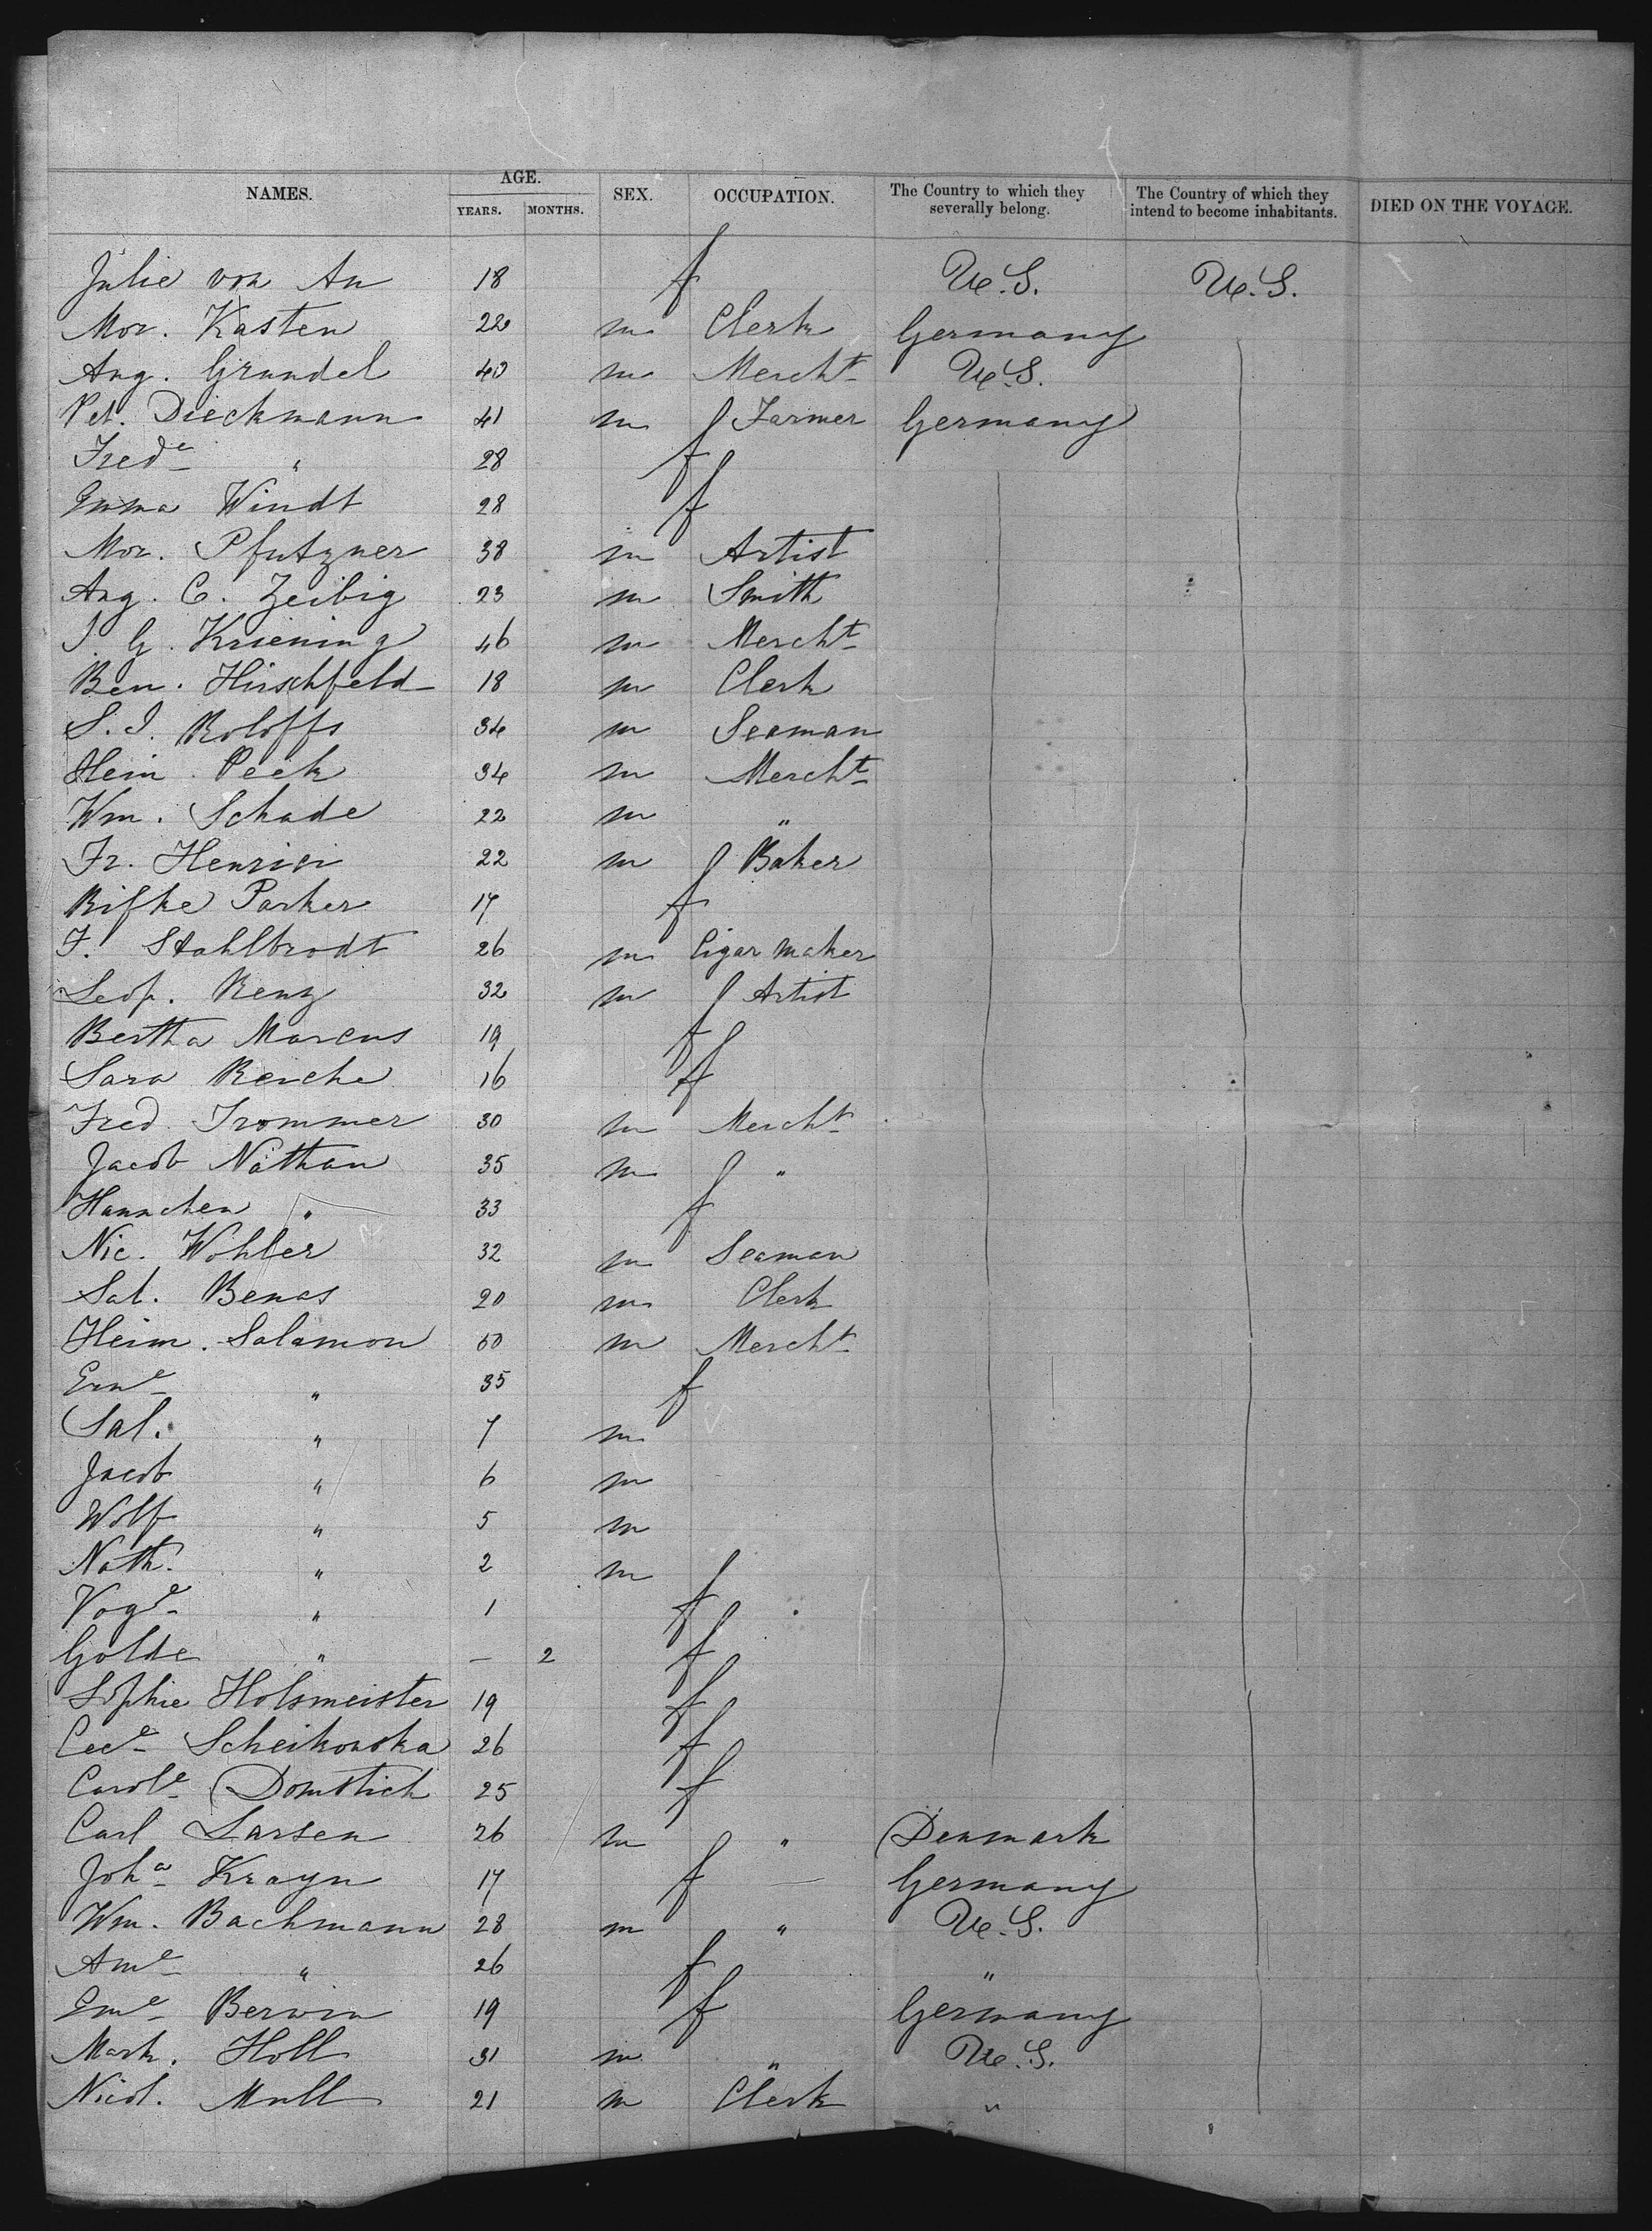 NAMES. AGE. SEX. OCCUPATION. The Country to which they severally belong. The Country of which they intend to become inhabitants. DIED ON THE VOYAGE.
YEARS. MONTHS.
Julie von An 18 f U.S. U.S.
Mor. Kasten 22 m Clerk Germany
Aug. Grundel 40 m Mercht U.S.
Pet. Dieckmann 41 m Farmer Germany
Frede " 28 f
Emma Windt 28 f
Mor. Pfutzner 38 m Artist
Aug. C. Zeibig 23 m Smith
J. G. Kriening 46 m Mercht
Ben. Hirschfeld 18 m Clerk
S. J. Roloffs 34 m Seaman
Hein. Peek 34 m Mercht
Wm. Schade 22 m "
Fr. Henrici 22 m Baker
Rifke Parker 17 f
F. Stahlbrodt 26 m Cigar maker
Leop. Renz 32 m Artist
Bertha Marcus 19 f
Sara Reiche 16 f
Fred. Trommer 30 m Mercht
Jacob Nathan 35 m "
Hannchen " 33 f
Nic. Wohler 32 m Seaman
Sal. Benas 20 m Clerk
Heim. Salamon m Mercht
Erne " 35 f
Sal. " 7 m
Jacob " 6 m
Wolf " 5 m
Nath. " 2 m
Voge " 1 f
Golde " — 2 f
Sophie Holsmeister 19 f
Cece Scheikowska 26 f
Carole Domstich 25 f
Carl Larsen 26 m " Denmark
Joha Krayn 17 f — Germany
Wm. Bachmann 28 m " U.S.
Ame " 26 f "
Eme Berwin 19 f Germany
Mark. Holl 31 m " U.S.
Nicol. Mull 21 m Clerk "